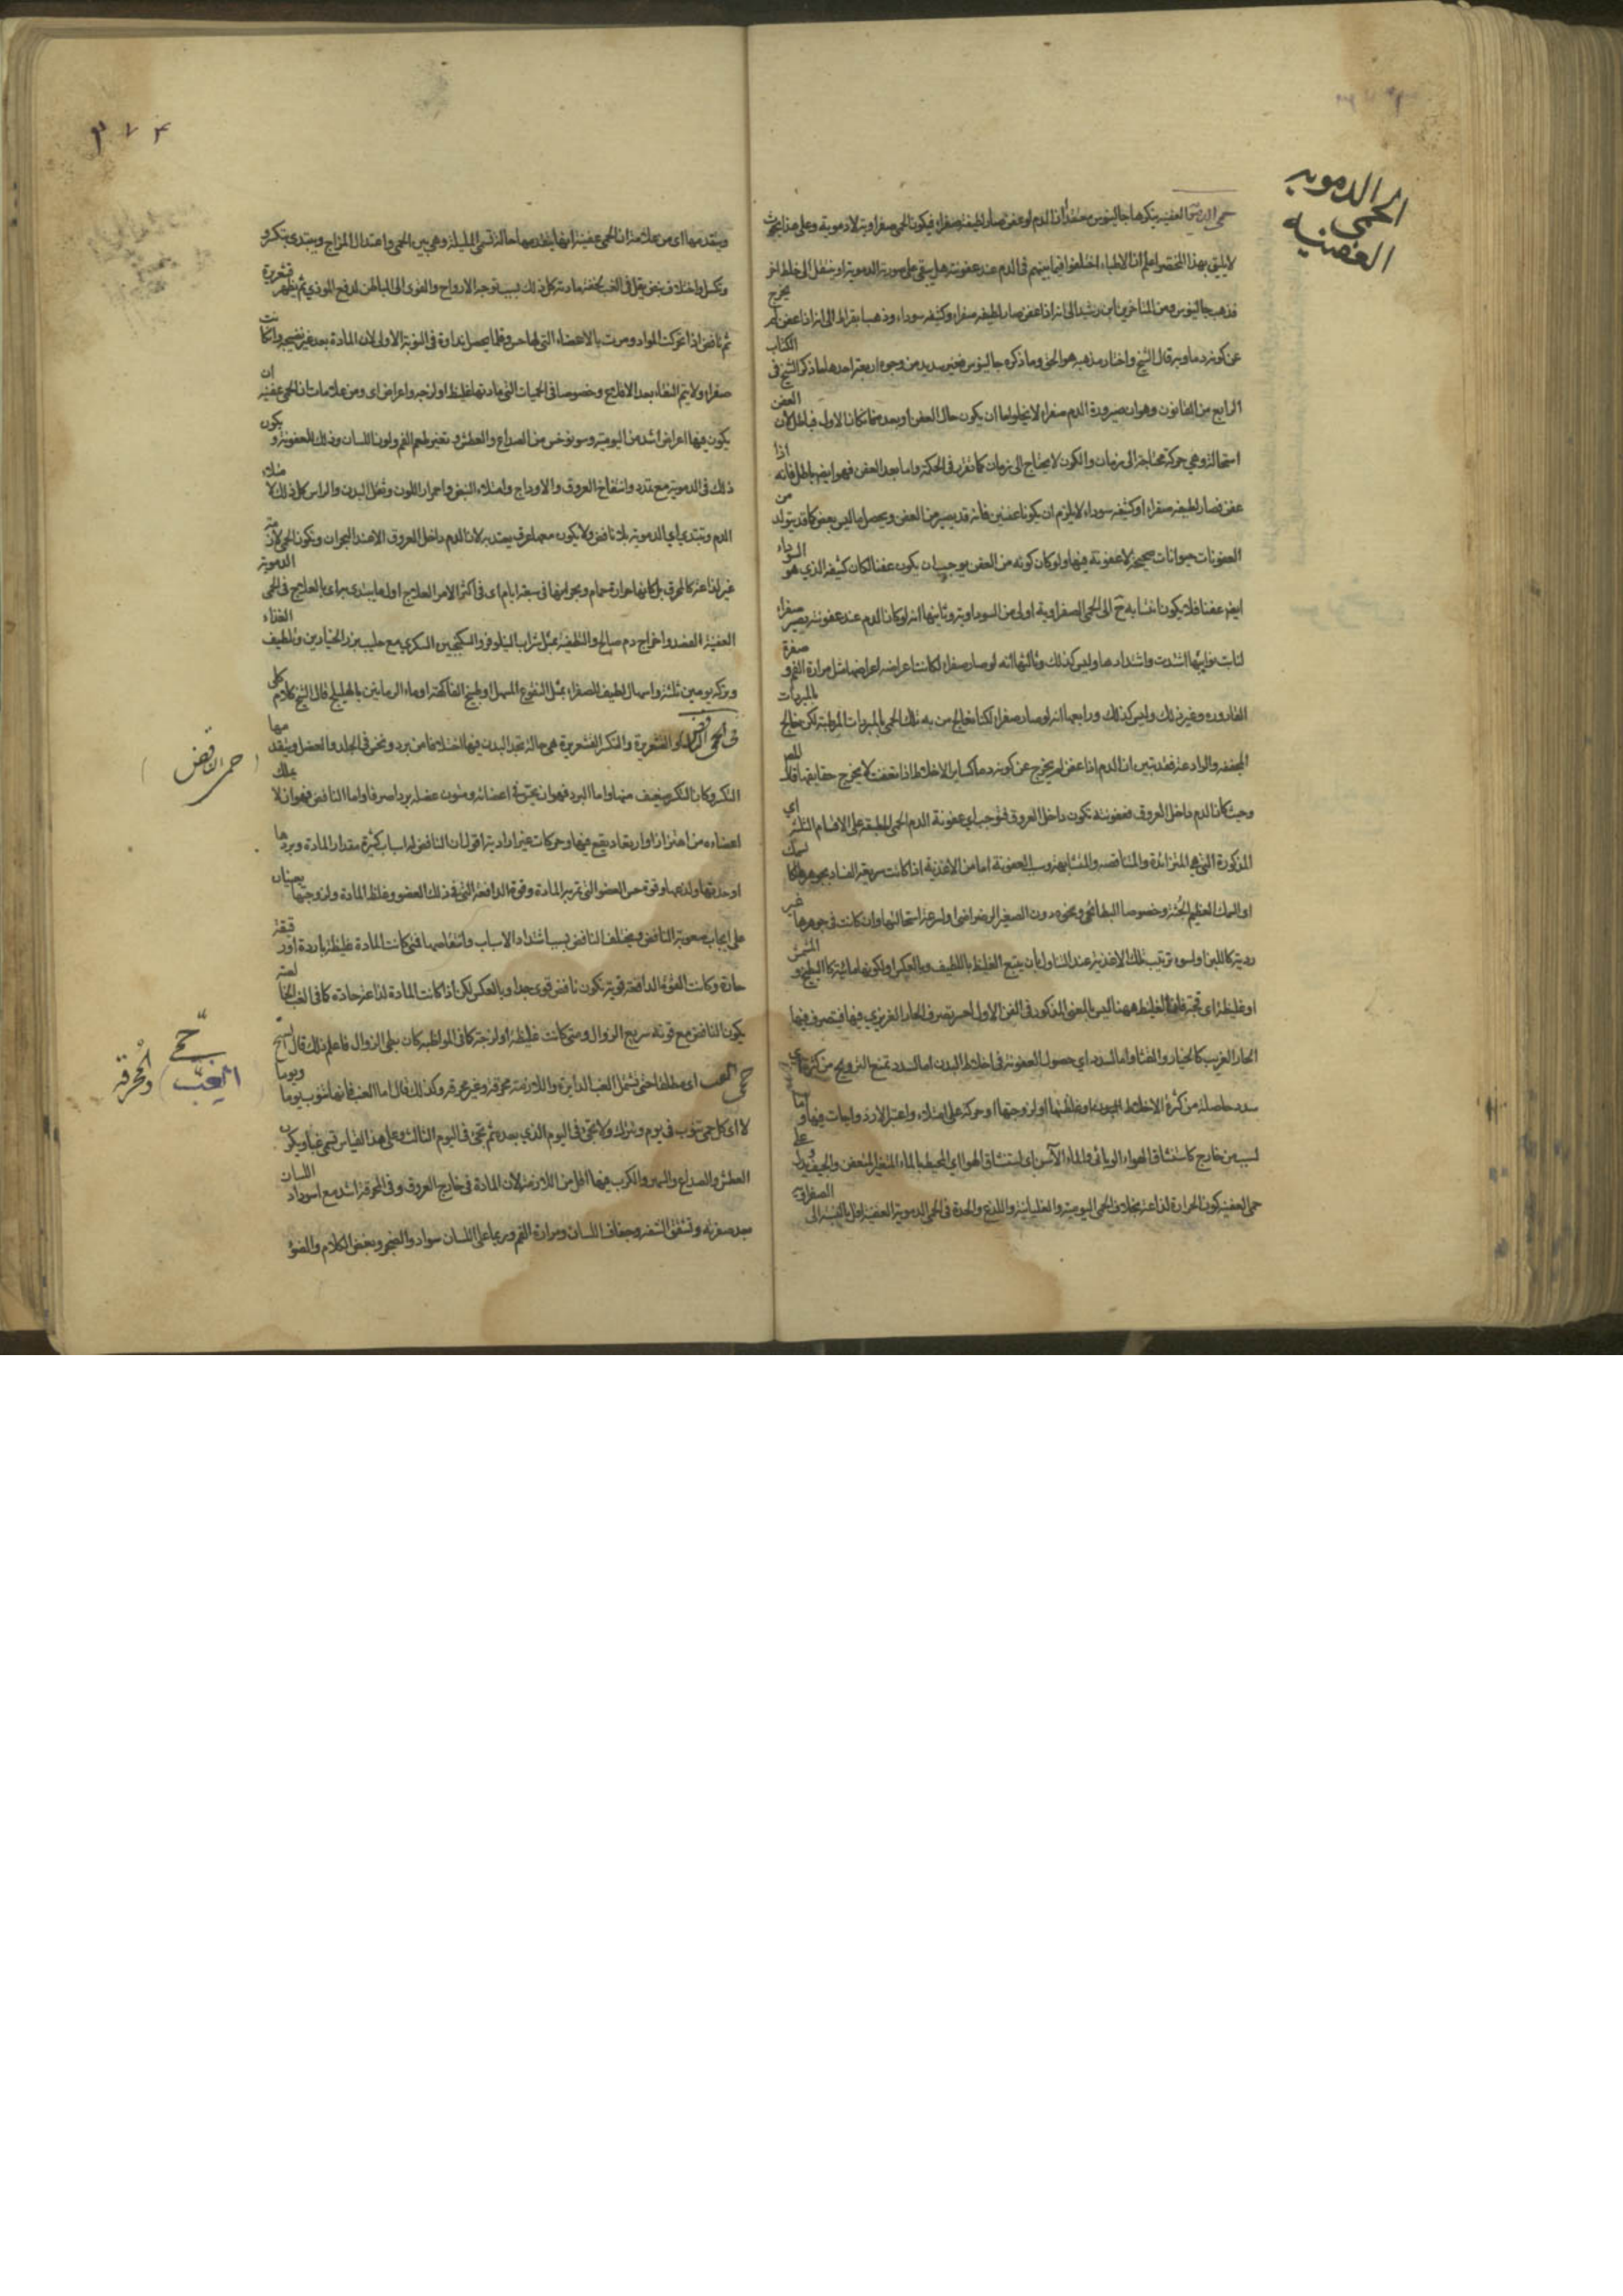 الحمى الدموية
العفنية
حمى الدموية العفنية ينكرها جالينوس معتقدا ان الدم لو عفن صار لطيفه صفراء فيكون الحمى صفراوية لا دموية وعلى هذا بحث
لا يليق بهذا المختصر اعلم ان الاطباء اختلفوا فيما بينهم في الدم عند عفونته هل يبقى على صورته الدموية او ينتقل الى خلط اخر
فذهب جالينوس ومن المتاخرين ابن رشد الى انه اذا عفن صار لطيفه صفراء وكثيفه سوداء وذهب ابقراط الى انه اذا عفن لم يخرج
عن كونه دما وبه قال الشيخ واختار مذهبه هو الحق وما ذكره جالينوس فغير سديد من وجوه اربعة احدها ما ذكر الشيخ في الكتاب
الرابع من القانون وهو ان صيرورة الدم صفراء لا يخلو اما ان يكون حال العفن او بعده فان كان الاول فباطل لان العفن
استحالة وهي حركة محتاجة الى زمان والكون لا يحتاج الى زمان كما تقرر في الحكمة واما بعد العفن فهو ايضا باطل فانه اذا
عفن فصار لطيفه صفراء او كثيفه سوداء لا يلزم ان يكونا عفنين فانه قد يصير من العفن ويحصل ما ليس بعفن كما قد يتولد من
العفونات حيوانات صحيحة لا عفونة فيها ولو كان كونه من العفن يوجب ان يكون عفنا لكان كثيفه الذي هو السوداء
ايضا عفنا فلا يكون انتسابه ح الى الحمى الصفراوية اولى من السوداوية وثانيها انه لو كان الدم عند عفونته يصير صفراء
لنابت نوايبها اشتدت واشتدادها وليس كذلك وثالثها انه لو صار صفراء لكانت اعراضه اعراضها مثل مرارة الفم و صفرة
القارورة وغير ذلك وليس كذلك ورابعها انه لو صار صفراء لكنا نعالج من به تلك الحمى بالمبردات المرطبة لكن نعالج بالمبردات
المجففة والرادعة فقد تبين ان الدم اذا عفن لم يخرج عن كونه دما كساير الاخلاط اذا تعفنت لا يخرج حقايقها قال المص
وحيث كان الدم داخل العروق فعفونته تكون داخل العروق فتوجب اي عفونة الدم الحمى المطبقة على الاقسام الثلثة اي
المذكورة التي هي المتزائدة والمتناقصة والمتشابهة وسبب العفونة اما من الاغذية اذا كانت سريعة الفساد بجوهرها كالسمك
او السمك العظيم الجثة وخصوصا البطائحي ونحوه دون الصغير الرضراضي او لسرعة استحالتها وان كانت في جوهرها غير
ردية كاللبن او لسوء ترتيب تلك الاغذية عند التناول بان يتبع الغليظ باللطيف وبالعكس او لكونها مائية كالبطيخ و المشمش
او غليظة اي فجة فان الغليظ ههنا ليس بالمعنى المذكور في الفن الاول لعسر تصرف الحار الغريزي فيها فيتصرف فيها
الحار الغريب كالخيار والقثاء واما السدة اي حصول العفونة في اخلاط البدن اما لسدد تمنع الترويح من كثرة اي
سدد حاصلة من كثرة الاخلاط الموجودة او غلظتها او لزوجتها او حركة على امتلاء واعتبر الازدواجات فيها و اما
لسبب من خارج كاستنشاق الهواء الوبائي والماء الآسن اي استنشاق الهواء المحيط بالماء المتغير المتعفن والجيف ويدل على
حمى العفنية كون الحرارة لذاعة بخلاف الحمى اليومية والغليانية واللذع والحدة في الحمى الدموية العفنية اقل بالنسبة الى الصفراوية
٣٧٤
ويتقدمها اي من علامة ان الحمى عفنية انها يتقدمها حالة تسمى المليلة وهي بين الحمى واعتدال المزاج ويبتدي بتكسر و
وتكسل واختلاف نبض
ثم نافض اذا تحركت المواد ومرت بالاعضاء التي لها حس وقلما يحصل نداوة في النوبة الاولى لان المادة بعد غير نضيجة وان كانت
صفراء ولا يتم النقاء بعد الاقلاع وخصوصا في الحميات التي مادتها غليظة او لزجة واعراض اي ومن علامات ان الحمى عفنية ان
يكون فيها اعراض اشد من اليومية وسونوخس من الصداع والعطش وتغير طعم الفم ولون اللسان وذلك للعفونة و يكون
ذلك في الدموية مع تمدد وانتفاخ العروق والاوداج وامتلاء النبض واحمرار اللون وثقل البدن والراس كل ذلك لامتلاء
الدم وتبتدي اي الدموية بلا نافض ولا يكون معها عرق يعتد به لان الدم داخل العروق الا عند البحران ويكون الحمى لازمة
غير لذاعة كالمحرق بل كانها حرارة حمام وبحرانها في سبعة ايام اي في اكثر الامر العلاج اول ما يبتدى به اي بالعلاج في الحمى الدموية
العفنية الفصد واخراج دم صالح والتطفية بمثل شراب النيلوفر والسكنجبين السكري مع حليب بزر الخيارين وتلطيف الغذاء
وتركه يومين ثلثة واسهال لطيف للصفراء بمثل النقوع المسهل او طبيخ الفاكهة او ماء الرمانين بالهليلج قال الشيخ كلام كلي
في الحمى النافض والقشعريرة والتكسر القشعريرة هي حالة يجد البدن فيها اختلافا من برد ونخس في الجلد والعضل ويتقدمها
التكسر وكان التكسر ضعيف منها واما البرد فهو ان يحس في اعضائه ومتون عضله بردا صرفا واما النافض فهو ان لا يملك
اعضاءه من اهتزاز وارتعاد يقع فيها وحركات غير ارادية اقول ان النافض له اسباب كثرة مقدار المادة وبردها
او حدتها ولذعها وقوة حس العضو التي تمر به المادة وقوة الدافعة التي في ذلك العضو وغلظ المادة ولزوجتها يعينان
على ايجاب صعوبة النافض ويختلف النافض بسبب اشتداد الاسباب وانتقاصها فمتى كانت المادة غليظة باردة او رقيقة
حادة وكانت القوة الدافعة قوية تكون نافض قوي جدا وبالعكس لكن اذا كانت المادة لذاعة حادة كما في الغب الخالصة
يكون النافض مع قوته سريع الزوال ومتى كانت غليظة او لزجة كما في المواظبة كان بطي الزوال فاعلم ذلك قال الشيخ
حمى الغب اي مطلقا حتى تشمل الغب الدايرة واللازمة محرقة وغير محرقة وكذلك قال اما الغب فانها تنوب يوما ويوما
لا اي كل حمى تنوب في يوم وتترك ولا تجئ في اليوم الذي بعده ثم تجئ في اليوم الثالث وعلى هذا القياس تسمى غبا ويكون
العطش والصداع والسهر والكرب فيها اقل من اللازمة لان المادة في خارج العروق وفي المحرقة اشد مع اسوداد اللسان
بعد صفرته وتشقق الشفة وجفاف اللسان ومرارة الفم وربما على اللسان سواد والضجر وبغض الكلام والضوء
حمى النافض
حمى
الغب
والمحرقة